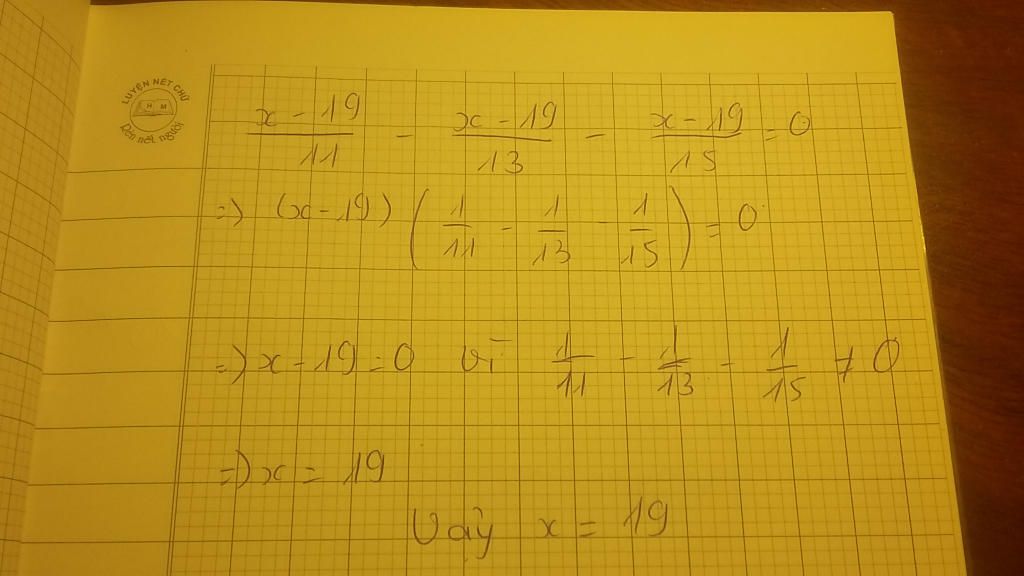 LUYỆN NÉT CHỮ
H M
Rèn nết người
x - 19/11 - x - 19/13 - x - 19/15 = 0
=> (x - 19) (1/11 - 1/13 - 1/15) = 0
=> x - 19 = 0 vì 1/11 - 1/13 - 1/15 ≠ 0
=> x = 19
Vậy x = 19